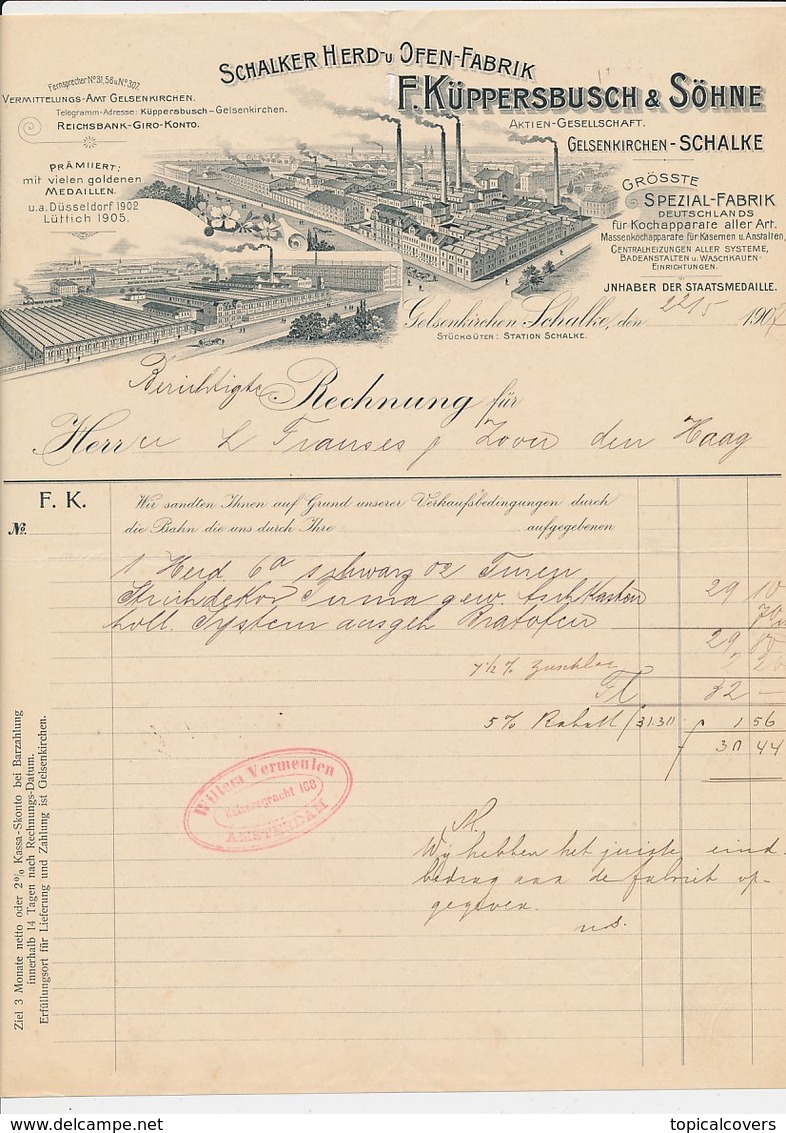 SCHALKER HERD- u OFEN-FABRIK
F. KÜPPERSBUSCH & SÖHNE
AKTIEN-GESELLSCHAFT.
GELSENKIRCHEN-SCHALKE
Fernsprecher No 31, 56 u. No 307.
VERMITTELUNGS-AMT GELSENKIRCHEN.
Telegramm-Adresse: Küppersbusch-Gelsenkirchen.
REICHSBANK-GIRO-KONTO.
PRÄMIIERT:
mit vielen goldenen
MEDAILLEN.
u.a. Düsseldorf 1902
Lüttich 1905.
GRÖSSTE
SPEZIAL-FABRIK
DEUTSCHLANDS
für Kochapparate aller Art.
Massenkochapparate für Kasernen u. Anstalten,
CENTRALHEIZUNGEN ALLER SYSTEME,
BADEANSTALTEN u. WASCHKAUEN-
EINRICHTUNGEN.
JNHABER DER STAATSMEDAILLE.
Gelsenkirchen Schalke, den 22 5 1907
STÜCKGÜTER: STATION SCHALKE.
Berichtigte Rechnung für
Herrn L Franses Zoon den Haag
F. K.
No.
Wir sandten Ihnen auf Grund unserer Verkaufsbedingungen durch
die Bahn die uns durch Ihre aufgegebenen
1 Herd 6a schwarz 02 Turen
Strichdekor gew. Aschkasten 29 10
holl. System ausgeh Bratofen 70
29 80
7 1/2 % 2 20
Fl 32 –
5 % Rabatt 1 56
30 44
Willem Vermeulen
Keizersgracht 108
AMSTERDAM
Wij hebben het juiste eind-
bedrag aan de fabriek op-
gegeven.
Ziel 3 Monate netto oder 2% Kassa-Skonto bei Barzahlung
innerhalb 14 Tagen nach Rechnungs-Datum.
Erfüllungsort für Lieferung und Zahlung ist Gelsenkirchen.
Willem Vermeulen
delcampe.net
topicalcovers